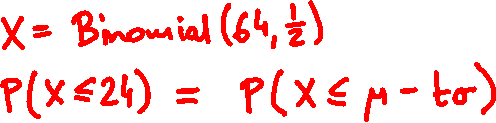 X = Binomial (64, 1/2)
P(X ≤ 24) = P(X ≤ μ - tσ)